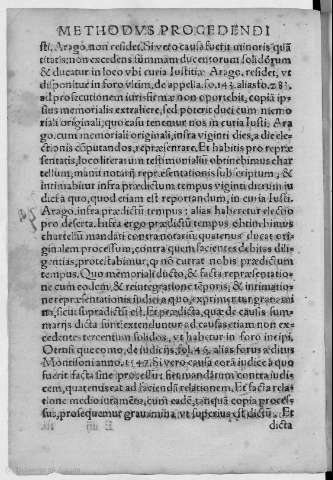 METHODVS PROCEDENDI
sti, Arago. non residet. Si vero causa fuerit minoris quã
titatis: non excedens summam ducentorum solidorum
& ducatur in loco vbi curia Iustitiæ Arago. residet, vt
disponitur in foro vltim. de appella. fo. 143. alias fo. 283.
ad prosecutionem iurisfirmæ non oportebit, copiã ip-
sius memorialis extrahere, sed poterit duci cum memo
riali originali, quo casu tenemur nos in curia Iusti. Ara
go. cum memoriali originali, infra viginti dies, a die ele-
ctionis cõputandos, repræsentare. Et habitis pro repræ
sentatis, loco literarum testimonialiũ obtinebimus char
tellum, manu notarij repræsentationis subscriptum, &
intimabitur infra prædictum tempus viginti dierum iu
dici a quo, quod etiam est reportandum, in curia Iusti.
Arago. infra prædictũ tempus: alias haberetur electio
pro deserta. Iuxta ergo prædictũ tempus obtinebimus
chartellũ mandati contra notariũ, quatenus ducat ori-
ginalem processum, contra quem facientes debitas dil
gentias, protestabimur, q̃ nõ currat nobis prædictum
tempus. Quo memoriali ducto, & facta repræsentatio-
ne cum eodem, & reintegratione tẽporis, & intimatio-
ne repræsentationis iudici a quo, exprimentur grauami
na, sicut supradictũ est. Et prædicta, quæ de causis sum-
marijs dicta sunt extenduntur ad causas etiam non ex-
cedentes tercentum solidos, vt habetur in foro incipi.
Otensi que como, de iudicijs, fol. 49. alias forus æditus
Montisoni anno. 1547. Si vero causa corã iudice a quo
fuerit facta sine processu: fiet mandatum contra iudi-
cem, quatenus eat ad faciendã relationem. Et facta rela-
tione medio iuramẽto, cum eadẽ, tanquã copia proces-
sus, prosequemur grauamina, vt superius est dictũ. Et
dicta